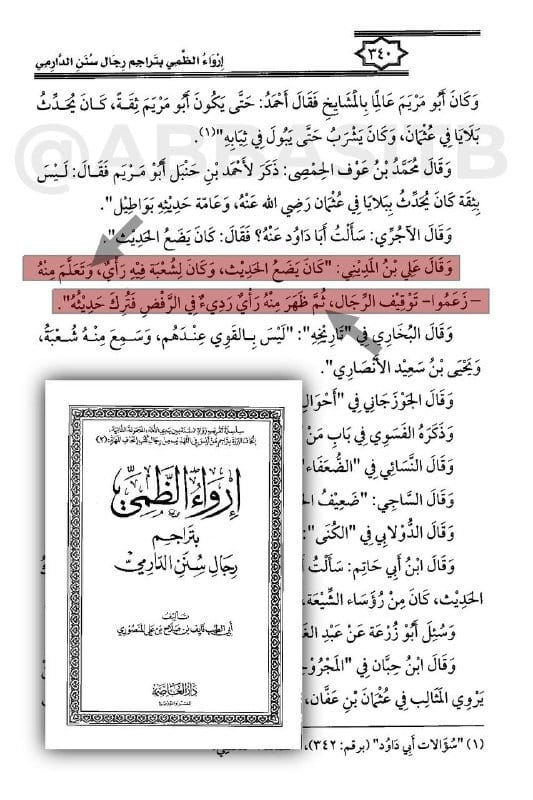 ٣٤٠
إِرْوَاءُ الظَّمِي بِتَرَاجِمِ رِجَالِ سُنَنِ الدَّارِمِي
وَكَانَ أَبُو مَرْيَمَ عَالِمًا بِالْمَشَايِخِ فَقَالَ أَحْمَدُ: حَتَّى يَكُونَ أَبُو مَرْيَمَ ثِقَةً، كَانَ يُحَدِّثُ
بَلَايَا فِي عُثْمَانَ، وَكَانَ يَشْرَبُ حَتَّى يَبُولَ فِي ثِيَابِهِ"(١).
وَقَالَ مُحَمَّدُ بْنُ عَوْفٍ الحِمْصِي: ذَكَرَ لأَحْمَد بْنِ حَنْبَل أَبُو مَرْيَم فَقَالَ: لَيْسَ
بِثِقَة كَانَ يُحَدِّثُ بِبَلايَا فِي عُثْمَان رَضِي الله عَنْهُ، وَعَامَّة حَدِيْثِهِ بَوَاطِيْل".
وَقَالَ الآجُرِّي: سَأَلْتُ أَبَا دَاوُد عَنْهُ؟ فَقَالَ: كَانَ يَضَعُ الحَدِيْث".
وَقَالَ عَلِي بْنُ المَدِيْنِي: "كَانَ يَضَعُ الحَدِيْث، وَكَانَ لِشُعْبَة فِيْهِ رَأْيٌ، وَتَعَلَّمَ مِنْهُ
- زَعَمُوا- تَوْقِيْف الرِّجَال، ثُمَّ ظَهَرَ مِنْهُ رَأْيٌ رَدِيءٌ فِي الرَّفْضِ فَتُرِكَ حَدِيْثُهُ".
وَقَالَ البُخَارِي فِي "تَارِيْخِهِ": "لَيْسَ بِالقَوِي عِنْدَهُم، وَسَمِعَ مِنْهُ شُعْبَةُ،
وَيَحْيَى بْنُ سَعِيْد الأَنْصَارِي".
وَقَالَ الجَوْزَجَانِي فِي "أَحْوَال
وَذَكَرَهُ الفَسَوِي فِي بَابِ مَنْ
وَقَالَ النَّسَائِي فِي "الضُّعَفَاء
وَقَالَ السَّاجِي: "ضَعِيْفُ
وَقَالَ الدُّوْلَابِي فِي "الكُنَى":
وَقَالَ ابْنُ أَبِي حَاتِم: سَأَلْتُ أَ
الحَدِيْث، كَانَ مِنْ رُؤَسَاء الشِّيْعَة،
وَسُئِلَ أَبُو زُرْعَة عَنْ عَبْدِ الغَ
وَقَالَ ابْنُ حِبَّان فِي "المَجْرُوْحِ
يَرْوِي المَثَالِب فِي عُثْمَانَ بْنِ عَفَّان،
(١) "سُؤَالات أَبِي دَاوُد" (برقم: ٣٤٢)،
إِرْوَاءُ الظَّمِيِّ
بِتَرَاجِمِ
رِجَالِ سُنَنِ الدَّارِمِيِّ
تَأْلِيفُ
أَبِي الطَّيِّبِ نَايِف بْن صَلَاح بْن عَلِي المَنْصُورِي
دَارُ العَاصِمَة